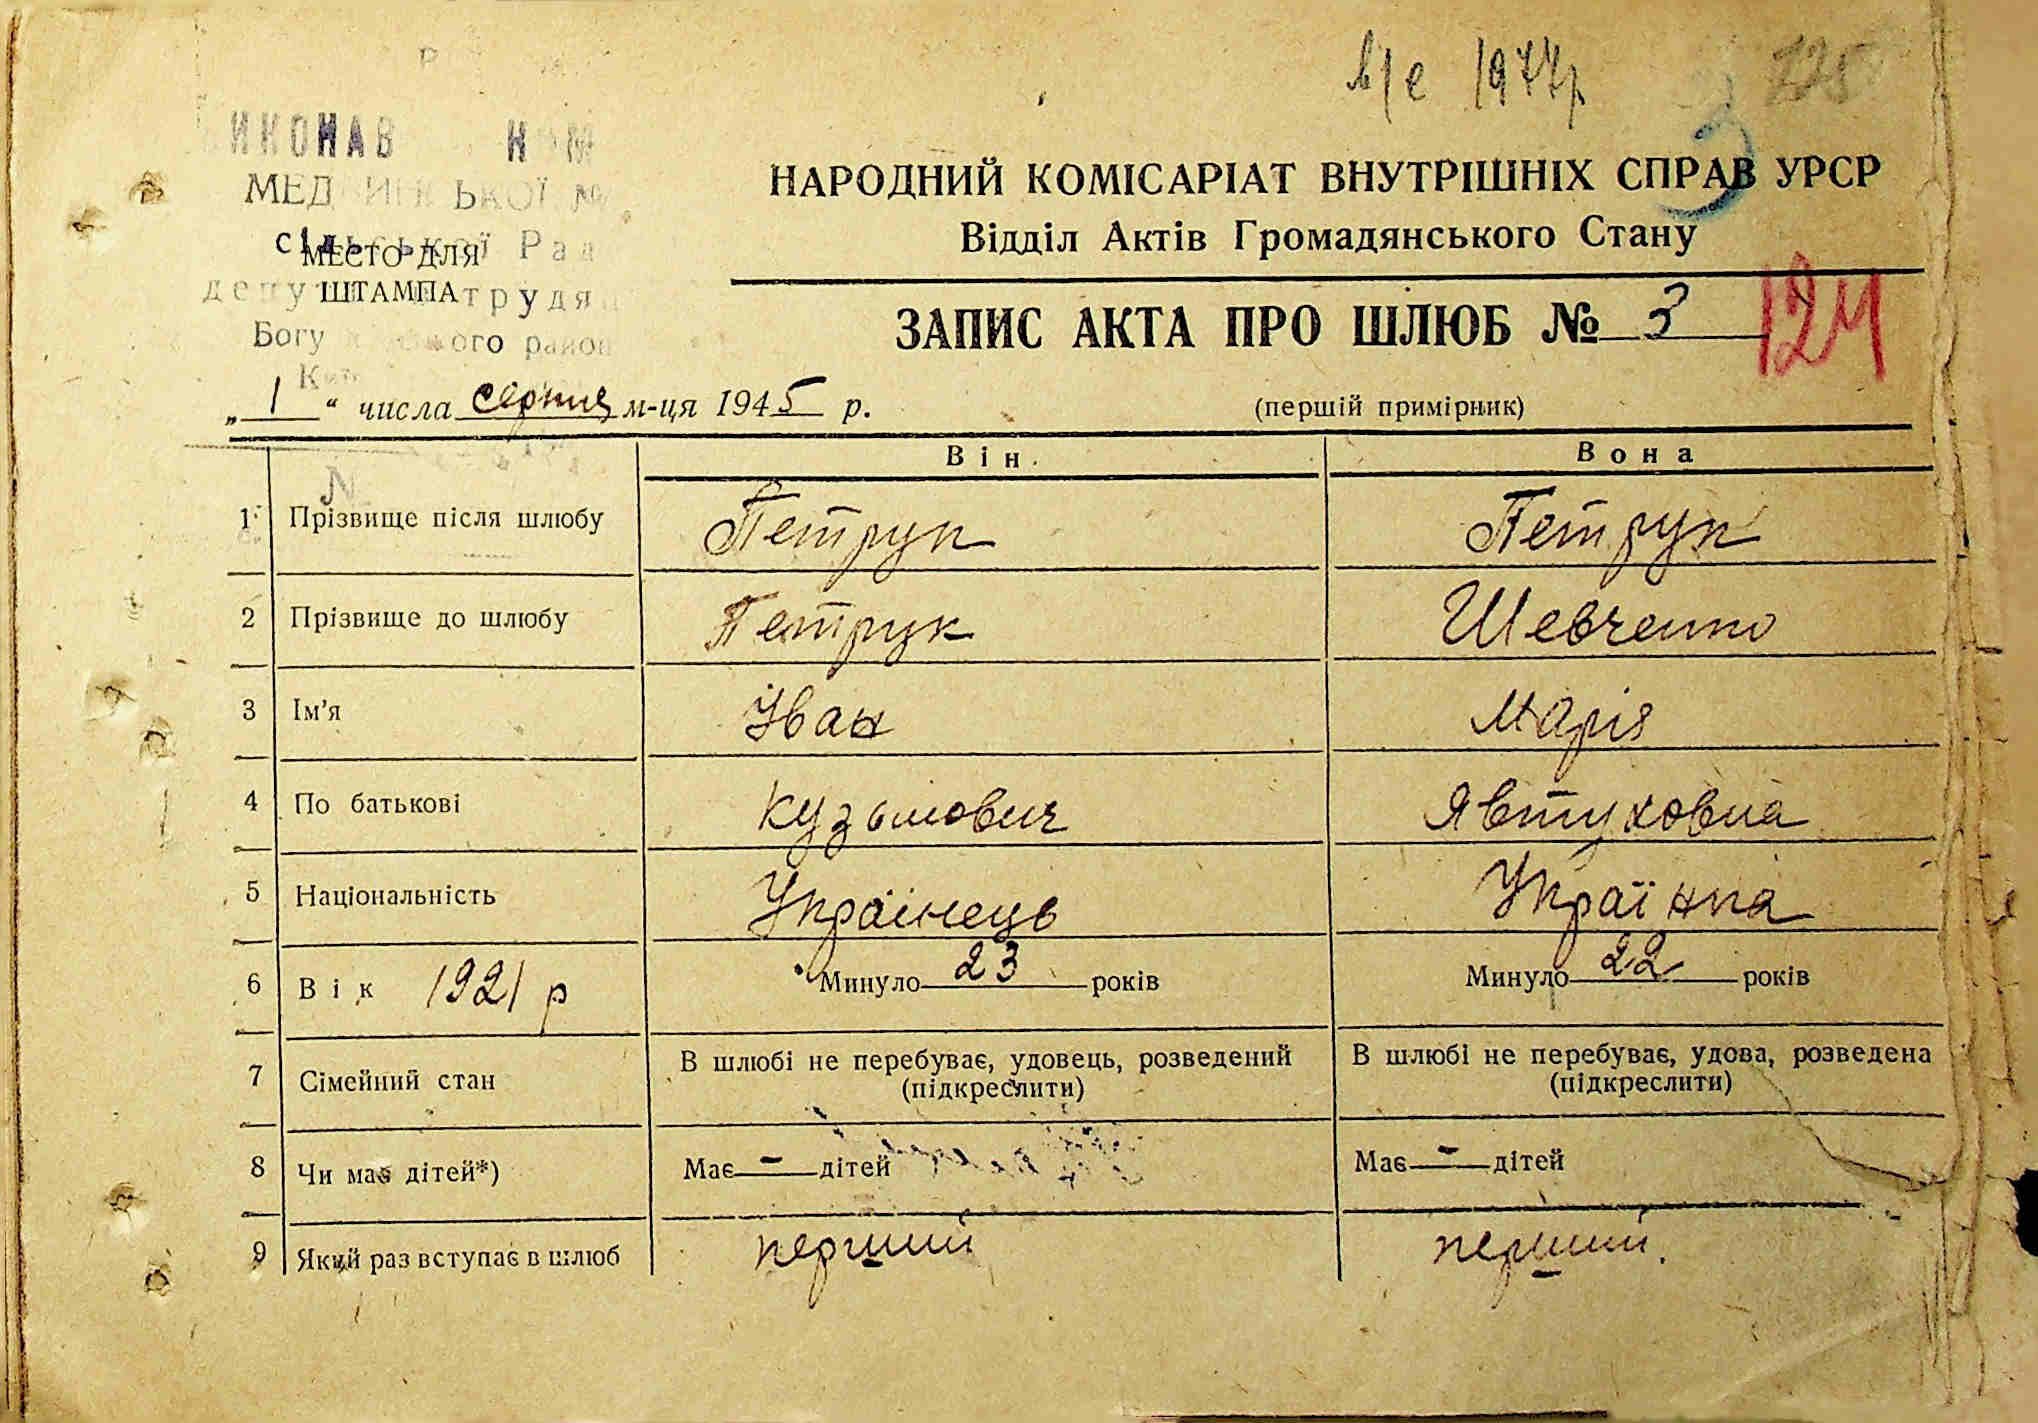 в/с 1977р
НАРОДНИЙ КОМІСАРІАТ ВНУТРІШНІХ СПРАВ УРСР
Відділ Актів Громадянського Стану
МЕСТО ДЛЯ
ШТАМПА
ЗАПИС АКТА ПРО ШЛЮБ № 3
124
„ 1 “ числа серпня м-ця 1945 р.
(першій примірник)
Він. Вона
1 Прізвище після шлюбу Петрук Петрук
2 Прізвище до шлюбу Петрук Шевченко
3 Ім’я Іван Марія
4 По батькові Кузьмович Явтуховна
5 Національність Українець Українка
6 Вік 1921 р Минуло 23 років Минуло 22 років
7 Сімейний стан В шлюбі не перебуває, удовець, розведений В шлюбі не перебуває, удова, розведена
(підкреслити) (підкреслити)
8 Чи має дітей*) Має - дітей Має - дітей
9 Який раз вступає в шлюб перший перший.